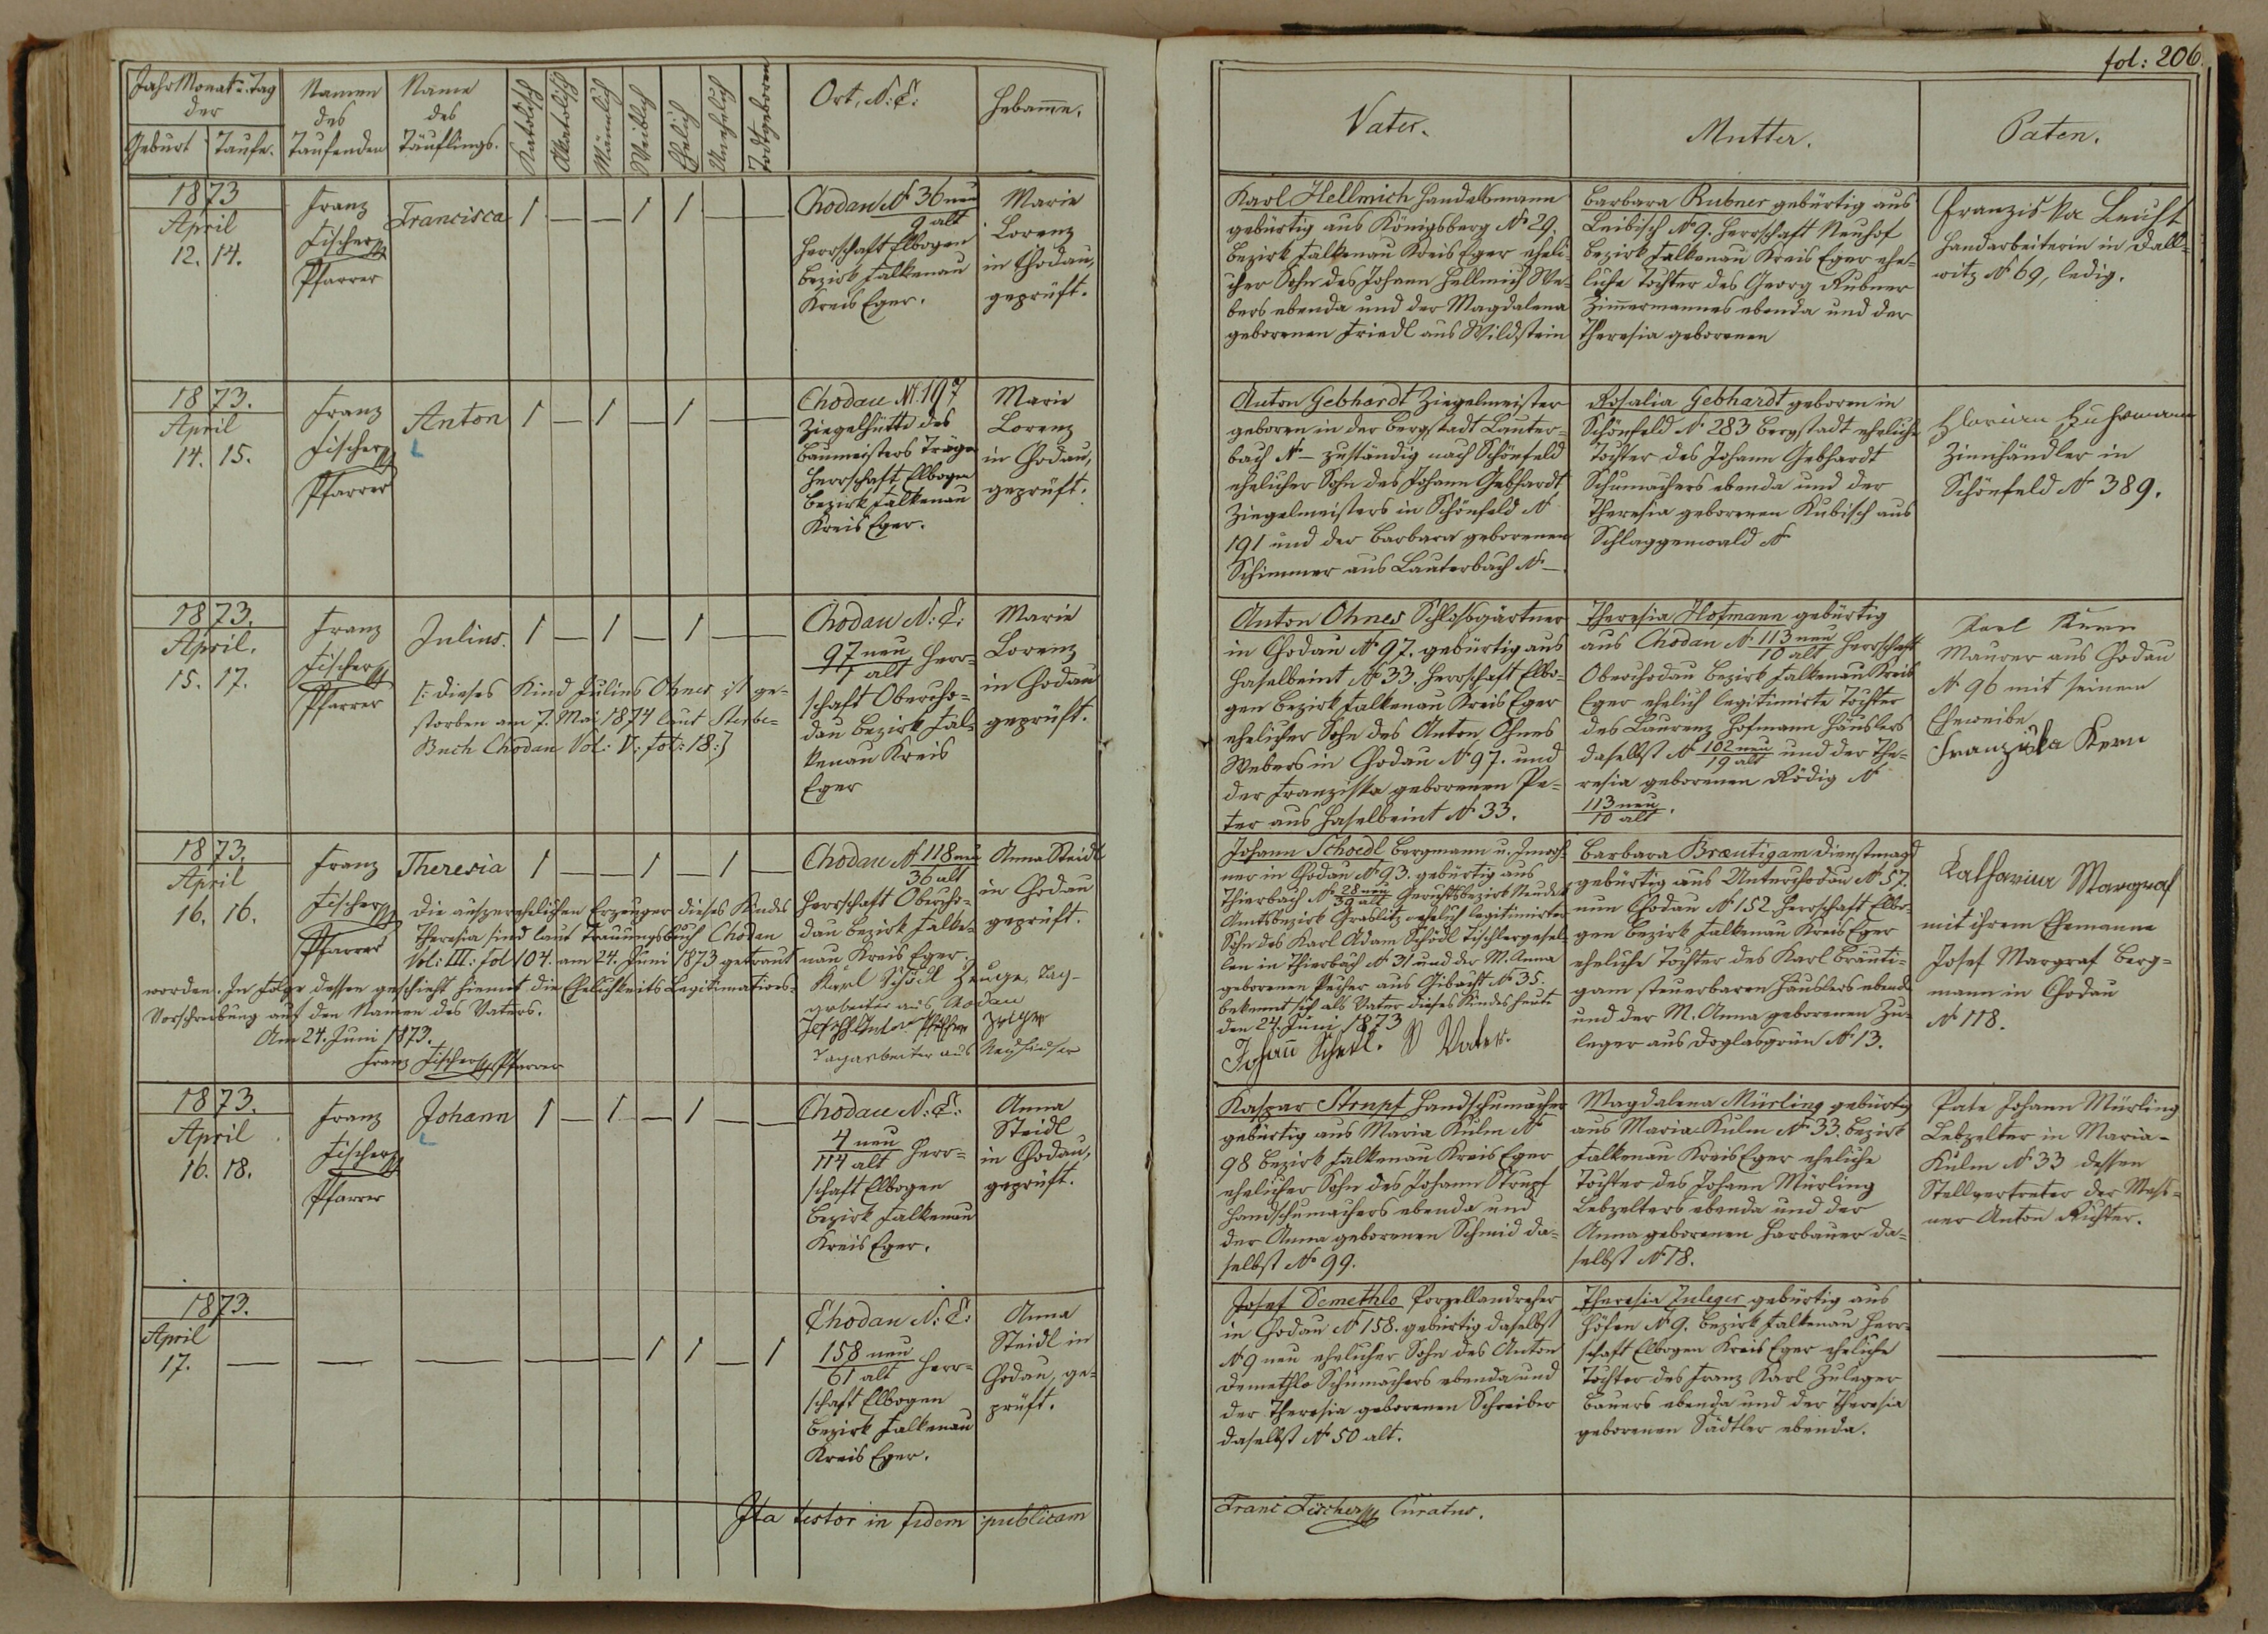 fol: 206.
Jahr Monat u. Tag
der
Geburt Taufe.
Namen
des
Taufenden
Name
des
Täuflings.
Katolisch
Akatolisch
Männlich
Weiblich
Ehelich
Unehelich
Todtgeboren
Ort, N: C:
Hebamme.
Vater.
Mutter.
Paten.
1873
April
12. 14.
Franz
Fischer
Pfarrer
Francisca
1 — — 1 1 — —
Chodau N 36 neu
9 alt
Herrschaft Elbogen
Bezirk Falkenau
Kreis Eger.
Marie
Lorenz
in Chodau,
geprüft.
Karl Hellmich Handelsmann
gebürtig aus Königsberg N 29.
Bezirk Falkenau Kreis Eger eheli-
cher Sohn des Johann Hellmich We-
bers ebenda und der Magdalena
geborenen Friedl aus Wildstein
Barbara Rubner gebürtig aus
Leibisch N 9. Herrschaft Neuhof
Bezirk Falkenau Kreis Eger ehe-
liche Tochter des Georg Rubner
Zimmermannes ebenda und der
Theresia geborenen
Franziska
Handarbeiterin in Dall-
witz N 69, ledig.
1873.
April
14. 15.
Franz
Fischer
Pfarrer
Anton
1 — 1 — 1 — —
Chodau N. 197
Ziegelhütte des
Baumeisters Träger
Herrschaft Elbogen
Bezirk Falkenau
Kreis Eger.
Marie
Lorenz
in Chodau,
geprüft.
Anton Gebhardt Ziegelmeister
geboren in der Bergstadt Lauter-
bach N — zuständig nach Schönfeld
ehelicher Sohn des Johann Gebhardt
Ziegelmeisters in Schönfeld N
191 und der Barbara geborenen
Schimmer aus Lauterbach N —.
Rosalia Gebhardt geboren in
Schönfeld N 283 Bergstadt eheliche
Tochter des Johann Gebhardt
Schumachers ebenda und der
Theresia geborenen Kubisch aus
Schlaggenwald N
Florian
Zinnhändler in
Schönfeld N 389.
1873.
April.
15. 17.
Franz
Fischer
Pfarrer
Julius.
1 — 1 — 1 — —
[: Dieses Kind Julius Ohnes ist ge-
storben am 7. Mai 1874 laut Sterbe-
Buch Chodau Vol: V: fol: 18:]
Chodau N: C:
97 neu
7 alt Herr-
schaft Obercho-
dau Bezirk Fal-
kenau Kreis
Eger
Marie
Lorenz
in Chodau
geprüft.
Anton Ohnes Schlossgärtner
in Chodau N 97. gebürtig aus
Haselbeint N 33. Herrschaft Elbo-
gen Bezirk Falkenau Kreis Eger
ehelicher Sohn des Anton Ohnes
Webers in Chodau N 97. und
der Franziska geborenen Pe-
ter aus Haselbeint N 33.
Theresia Hofmann gebürtig
aus Chodau N 113 neu
10 alt Herrschaft
Oberchodau Bezirk Falkenau Kreis
Eger ehelich legitimirte Tochter
des Laurenz Hofmann Häuslers
daselbst N 102 neu
19 alt und der The-
resia geborenen Rödig N
113 neu
10 alt.
Karl Kern
Maurer aus Chodau
N 96 mit seinem
Eheweibe
Franziska Kern
1873.
April
16. 16.
Franz
Fischer
Pfarrer
Theresia
1 — — 1 — 1 —
Die auszerehelichen Erzeuger dieses Kindes
Theresia sind laut Trauungsbuch Chodau
Vol: III: fol 104. am 24. Juni 1873 getraut
worden. In Folge dessen geschieht hiemit die Ehelichkeits Legitimations-
Vorschreibung auf den Namen des Vaters.
Am 24. Juni 1873.
Franz Fischer Pfarrer
Chodau N 118 neu
36 alt
Herrschaft Obercho-
dau Bezirk Falke-
nau Kreis Eger.
Karl Schödl Zeuge, Tag-
arbeiter aus Chodau
Zeuge
Tagarbeiter aus
Anna Steidl
in Chodau
geprüft.
Johann Schoedl Bergmann u. Inwoh-
ner in Chodau N 93. gebürtig aus
Thierbach N 28 neu
39 alt Gerichtsbezirk Neudek
Amtsbezirk Graslitz ehelich legitimirter
Sohn des Karl Adam Schödl Tischlergesel-
len in Thierbach N 31 und der M. Anna
geborenen Pecher aus Gibacht N 35.
bekennt sich als Vater dieses Kindes heute
den 24. Juni 1873
Johann Schedl. Vater.
Barbara Brautigam Dienstmagd
gebürtig aus Unterchodau N 57.
nun Chodau N 152 Herrschaft Elbo-
gen Bezirk Falkenau Kreis Eger
eheliche Tochter des Karl Bräuti-
gam steuerbaren Häuslers ebenda
und der M. Anna geborenen Zu-
leger aus Doglasgrün N 13.
Katharina Margraf
mit ihrem Ehemanne
Josef Margraf Berg-
mann in Chodau
N 118.
1873.
April
16. 18.
Franz
Fischer
Pfarrer
Johann
1 — 1 — 1 — —
Chodau N: C:
4 neu
114 alt Herr-
schaft Elbogen
Bezirk Falkenau
Kreis Eger.
Anna
Steidl
in Chodau,
geprüft.
Kaspar Strupf Handschumacher
gebürtig aus Maria Kulm N
98 Bezirk Falkenau Kreis Eger
ehelicher Sohn des Johann Strupf
Handschumachers ebenda und
der Anna geborenen Schmid da-
selbst N 99.
Magdalena Mürling gebürtig
aus Maria-Kulm N 33. Bezirk
Falkenau Kreis Eger eheliche
Tochter des Johann Mürling
Lebzelters ebenda und der
Anna geborenen Harbauer da-
selbst N 18.
Pate Johann Mürling
Lebzelter in Maria-
Kulm N 33 dessen
Stellvertreter der Meß-
ner Anton Richter.
1873.
April
17. — — — — — 1 1 — 1
Chodau N: C:
158 neu
61 alt Herr-
schaft Elbogen
Bezirk Falkenau
Kreis Eger.
Anna
Steidl in
Chodau, ge-
prüft.
Josef Demethlo Porzellandreher
in Chodau N 158. gebürtig daselbst
N 9 neu ehelicher Sohn des Anton
Demethlo Schumachers ebenda und
der Theresia geborenen Schreiber
daselbst N 50 alt.
Theresia Zuleger gebürtig aus
Höfen N 9. Bezirk Falkenau Herr-
schaft Elbogen Kreis Eger eheliche
Tochter des Franz Karl Zuleger
Bauers ebenda und der Theresia
geborenen Sädtler ebenda.
Ita testor in fidem publicam
Franc Fischer Curatus.